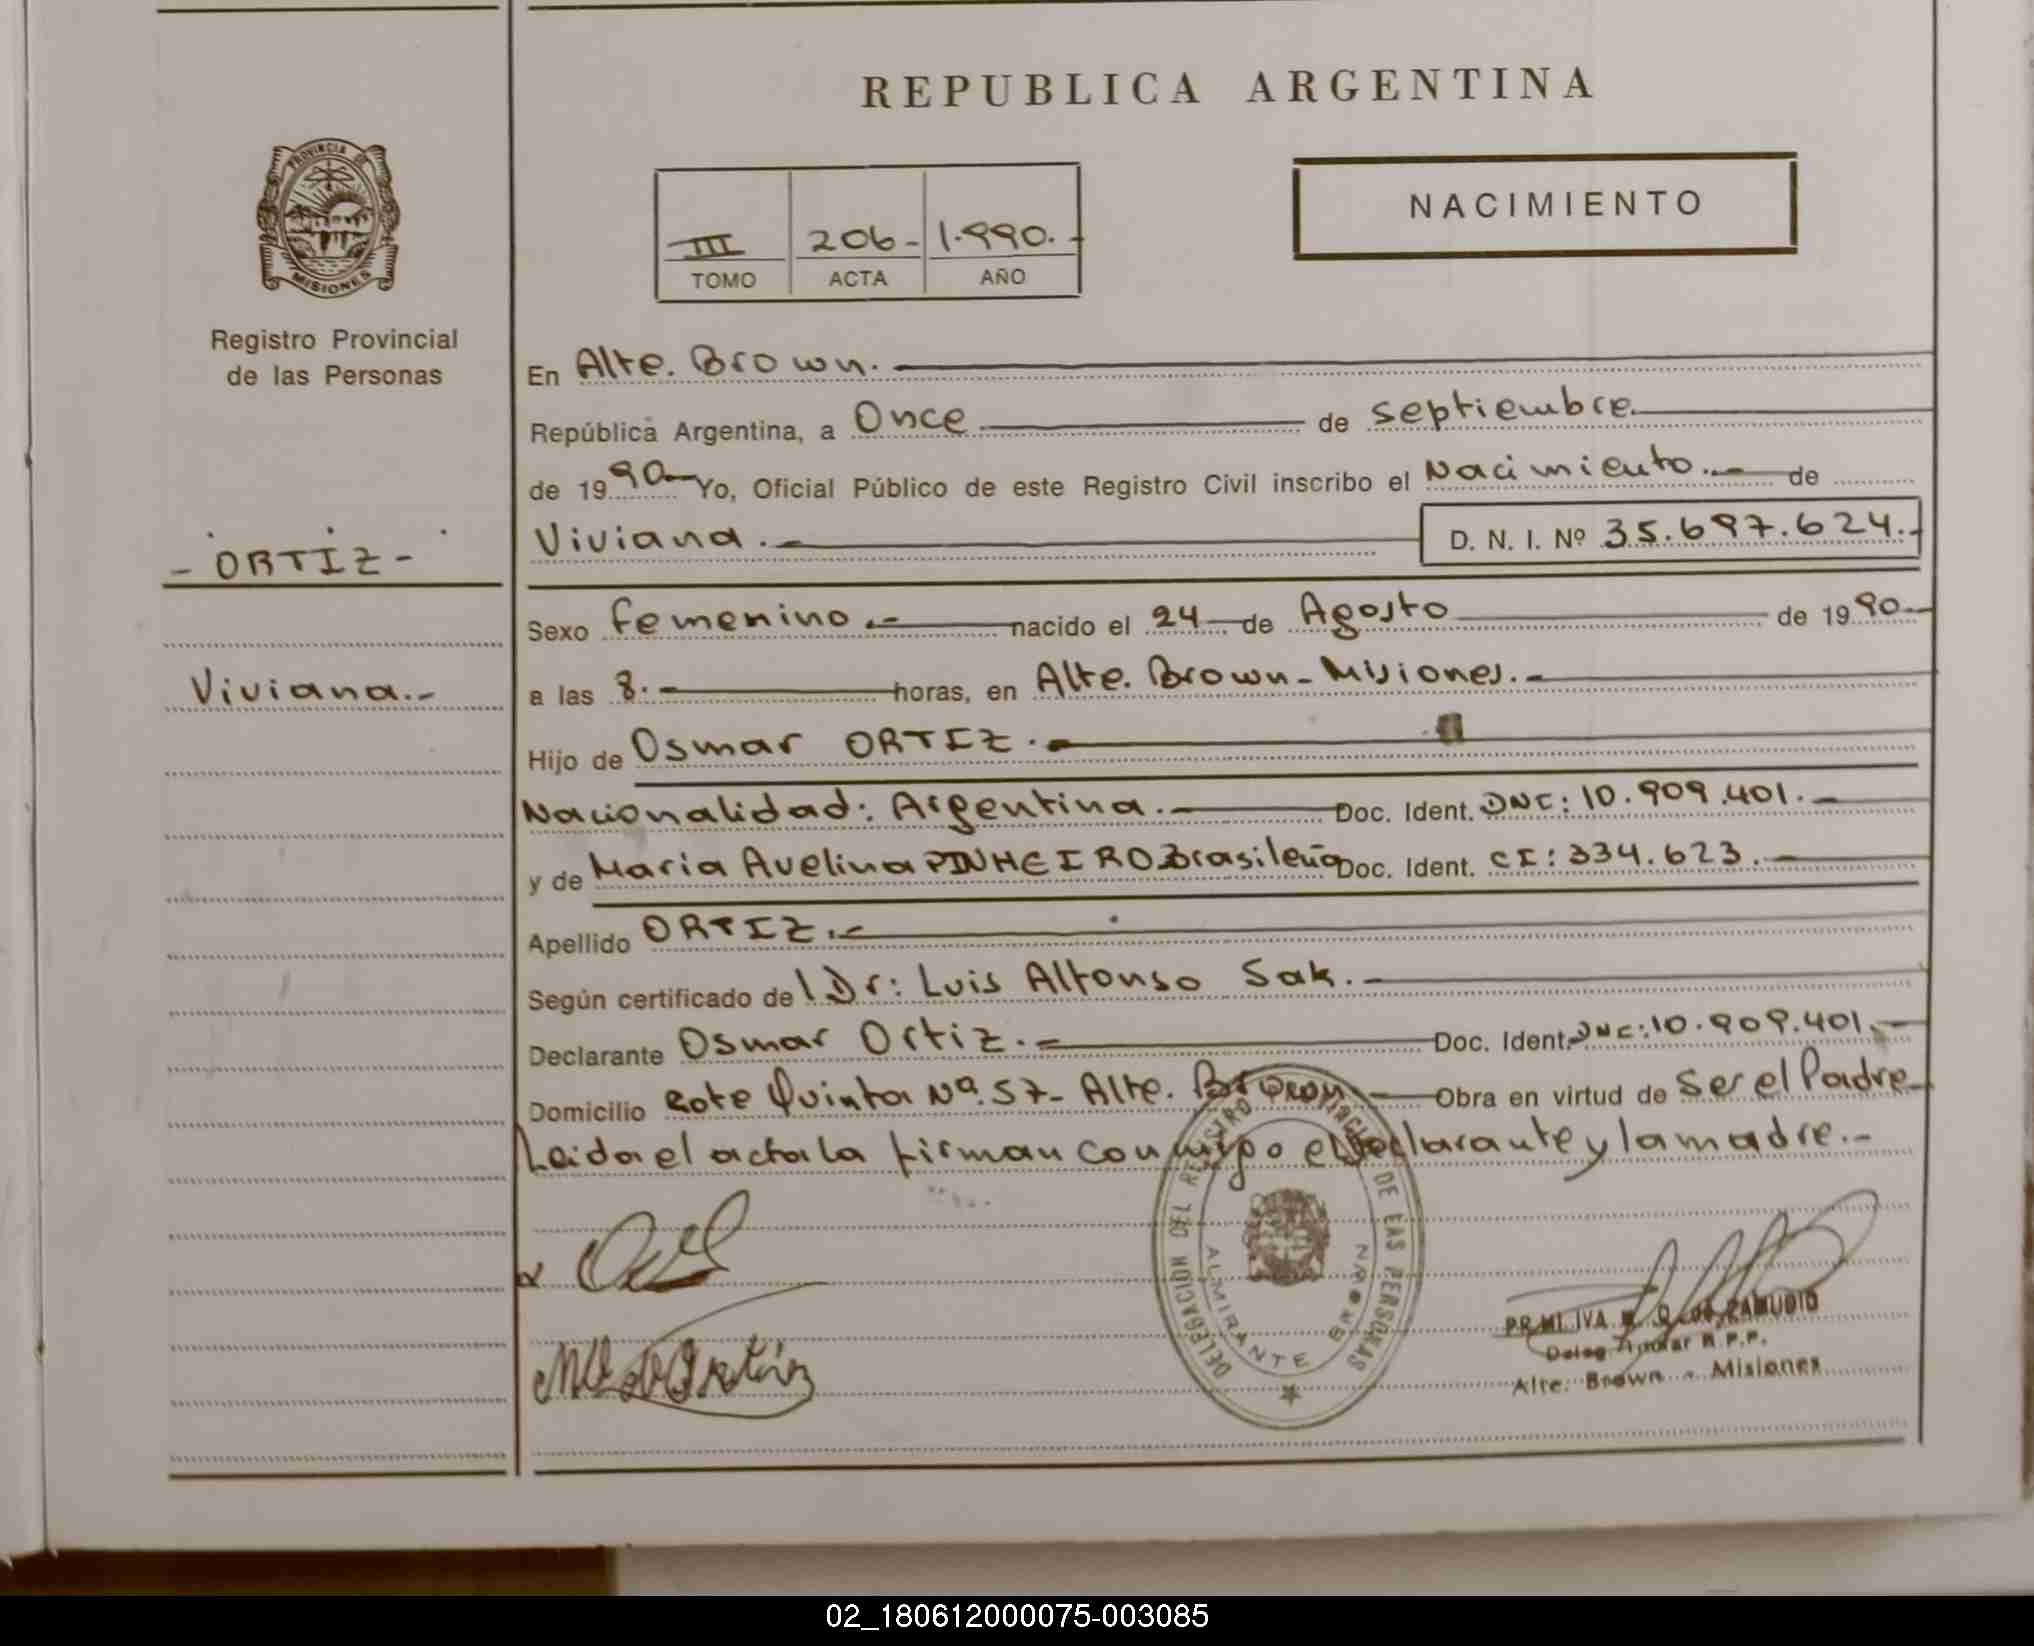 REPUBLICA ARGENTINA
PROVINCIA DE
MISIONES
Registro Provincial
de las Personas
NACIMIENTO
III 206- 1.990.-
TOMO ACTA AÑO
En Alte. Brown.
República Argentina, a Once de septiembre
de 1990 Yo, Oficial Público de este Registro Civil inscribo el Nacimiento.- de
Viviana.- D. N. I. Nº 35.697.624.-
- ORTIZ -
Sexo femenino.- nacido el 24 de Agosto de 1990
Viviana.-
a las 8.- horas, en Alte. Brown-Misiones.-
Hijo de Osmar ORTIZ.-
Nacionalidad: Argentina.- Doc. Ident. DNI: 10.909.401.-
y de Maria Avelina PINHEIRO Brasileña Doc. Ident. CI: 334.623.-
Apellido ORTIZ.-
Según certificado de l Dr: Luis Alfonso Sak.-
Declarante Osmar Ortiz.- Doc. Ident. DNI: 10.909.401.-
Domicilio Lote Quinta Nº. 57- Alte. Brown Obra en virtud de Ser el Padre
Leida el acta la firman conmigo el Declarante y la madre.-
DELEGACION DEL REGISTRO PROVINCIAL DE LAS PERSONAS
ALMIRANTE BROWN
DE ZAMUDIO
Deleg. Titular R.P.P.
Alte. Brown - Misiones
02_180612000075-003085